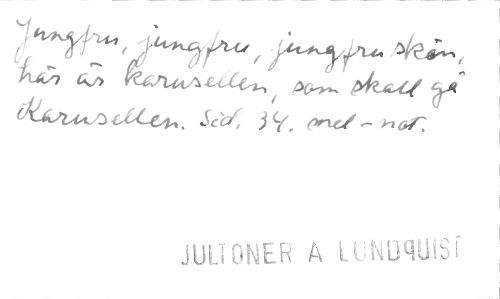 Jungfru, jungfru, jungfru skön,
här är karusellen, som skall gå
Karusellen. Sid. 34. mel-not.
JULTONER A LUNDQUIST